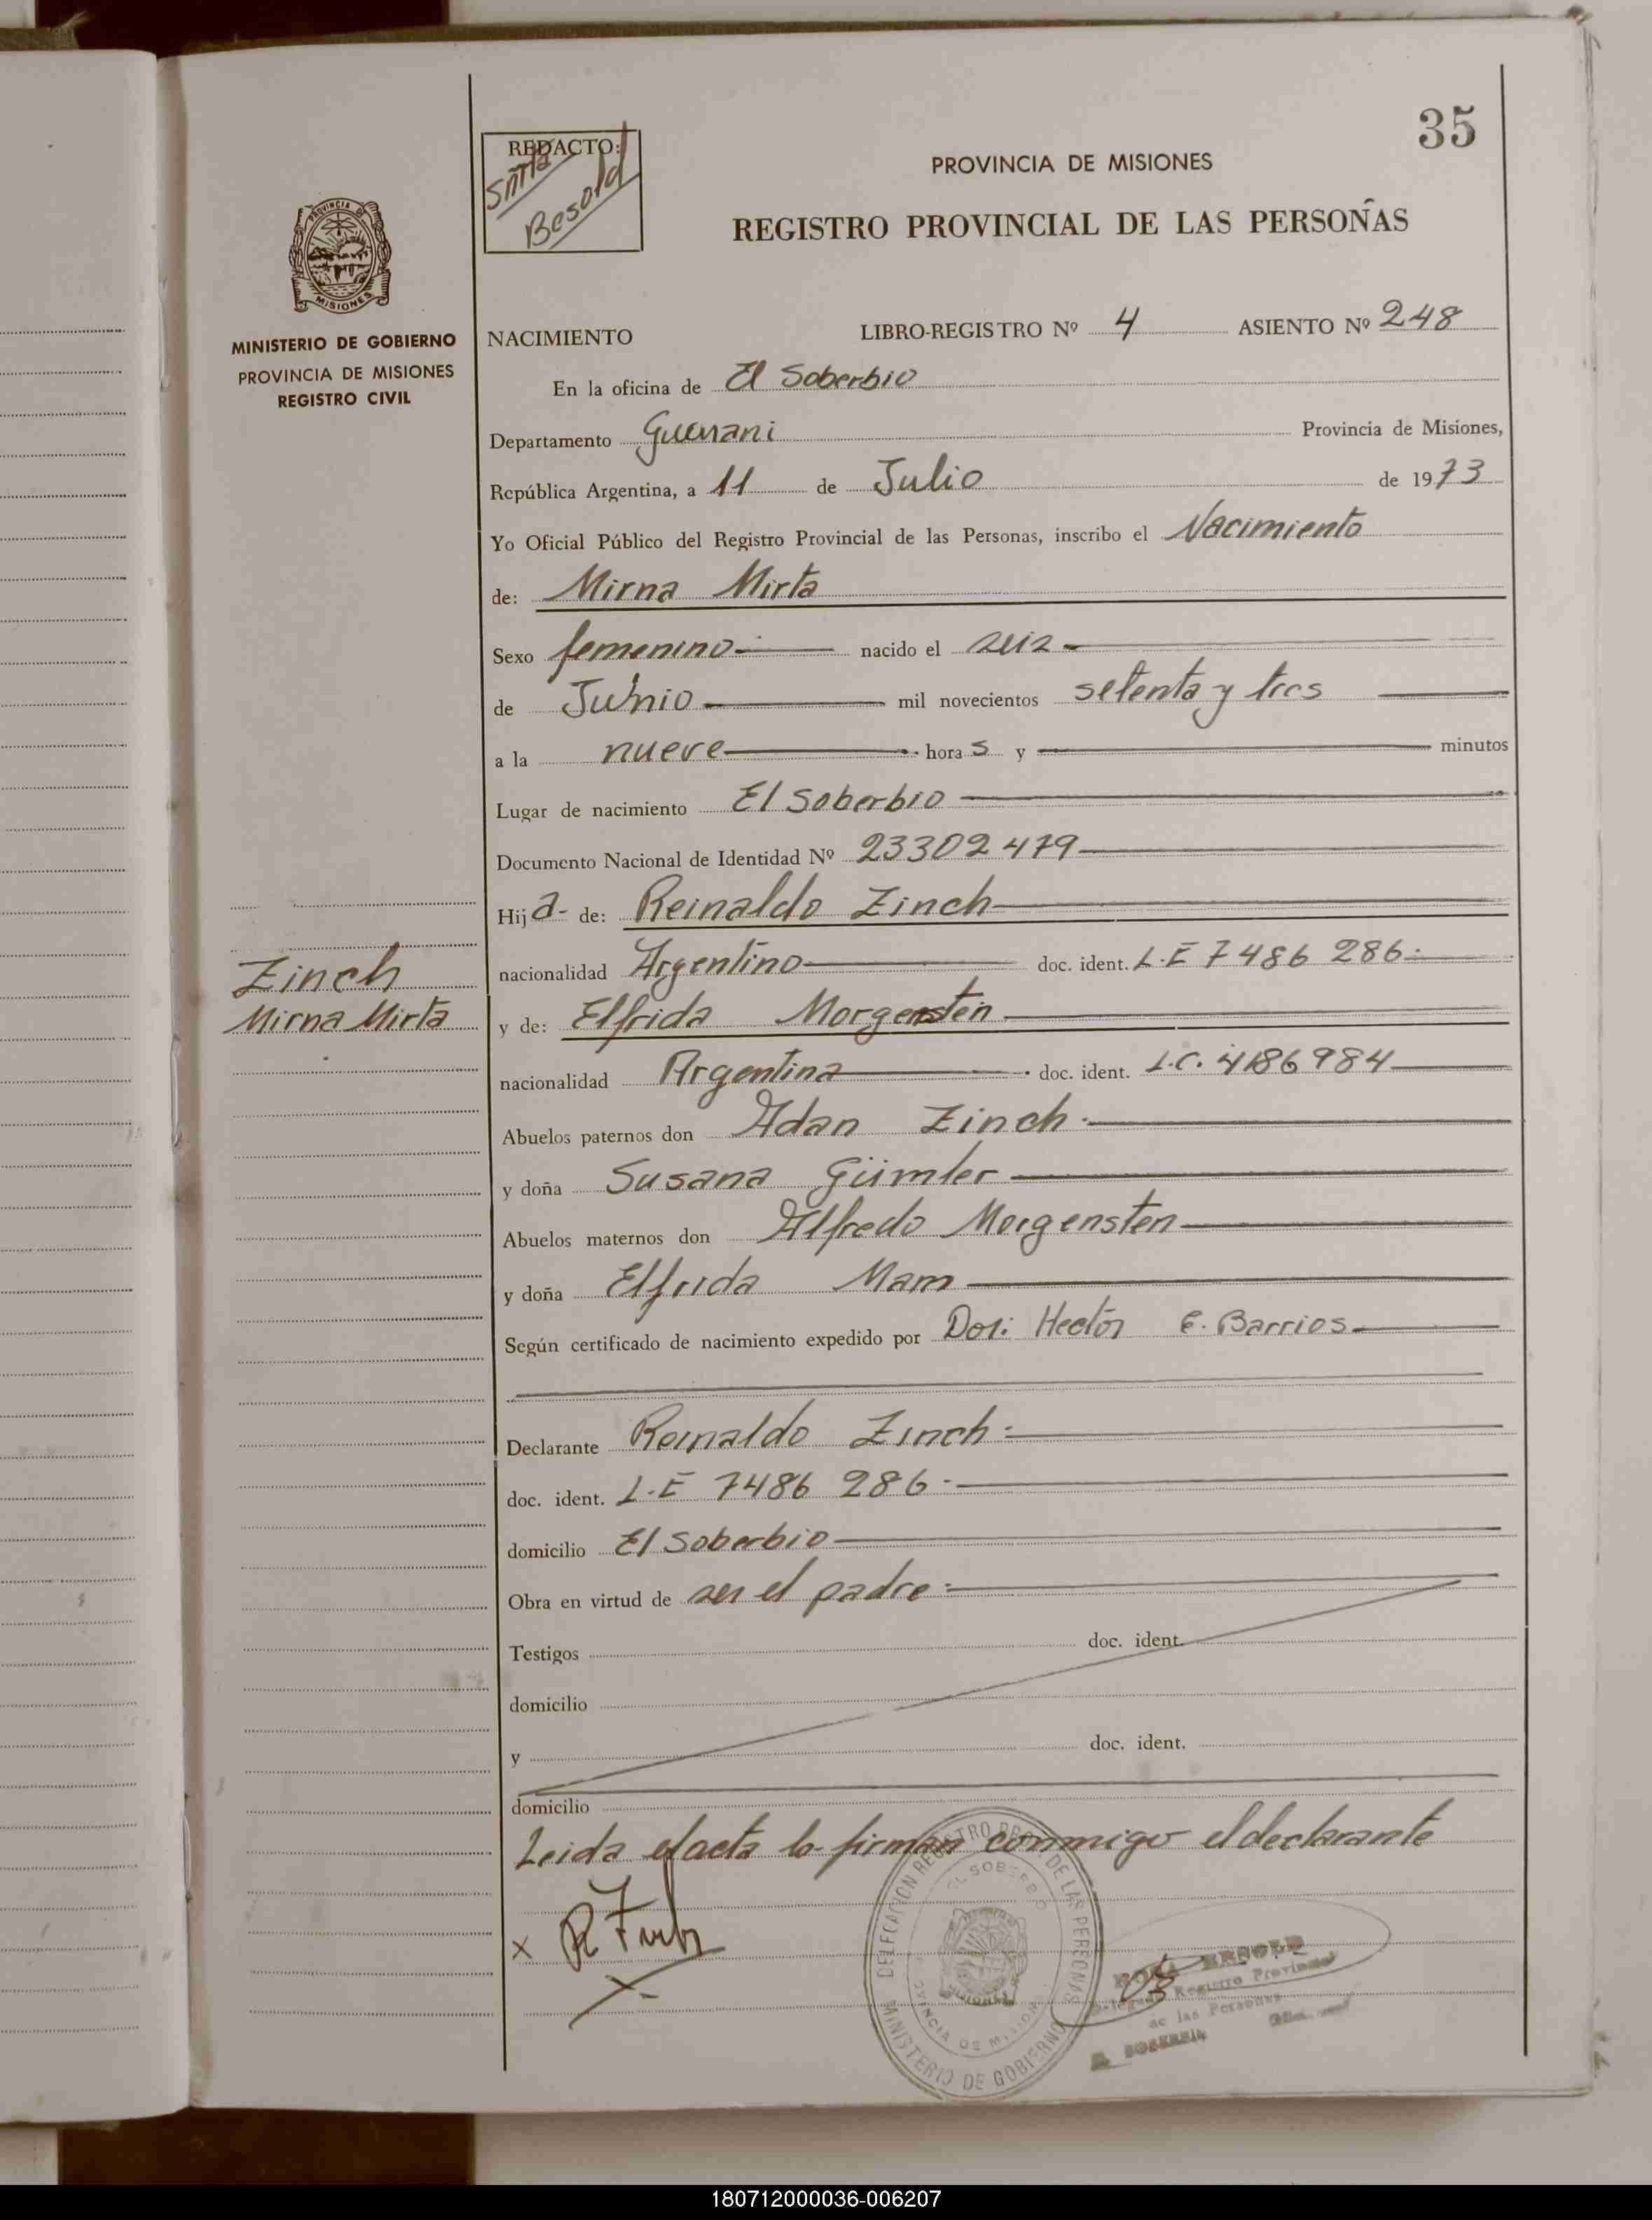 35
REDACTO:
Sñrta
Besold
PROVINCIA DE MISIONES
REGISTRO PROVINCIAL DE LAS PERSONAS
PROVINCIA DE
MISIONES
MINISTERIO DE GOBIERNO
PROVINCIA DE MISIONES
REGISTRO CIVIL
NACIMIENTO LIBRO-REGISTRO Nº 4 ASIENTO Nº 248
En la oficina de El Soberbio
Departamento Guarani Provincia de Misiones,
República Argentina, a 11 de Julio de 1973
Yo Oficial Público del Registro Provincial de las Personas, inscribo el Nacimiento
de: Mirna Mirta
Sexo femenino nacido el seis
de Junio mil novecientos setenta y tres
a la nueve horas y minutos
Lugar de nacimiento El Soberbio
Documento Nacional de Identidad Nº 23302479
Hija- de: Reinaldo Zinch
nacionalidad Argentino doc. ident. L.E 7486 286
Zinch
Mirna Mirta
y de: Elfrida Morgensten
nacionalidad Argentina doc. ident. L.C. 4186984
Abuelos paternos don Adan Zinch
y doña Susana Gümler
Abuelos maternos don Alfredo Morgensten
y doña Elfrida Mam
Según certificado de nacimiento expedido por Hector E. Barrios
Declarante Reinaldo Zinch
doc. ident. L.E 7486 286
domicilio El Soberbio
Obra en virtud de ser el padre
Testigos doc. ident.
domicilio
y doc. ident.
domicilio
Leida el acta la firman conmigo el declarante
DELEGACION REGISTRO PROV. DE LAS PERSONAS
EL SOBERBIO
PROVINCIA DE MISIONES
MINISTERIO DE GOBIERNO
Registro Provincial
de las Personas
180712000036-006207